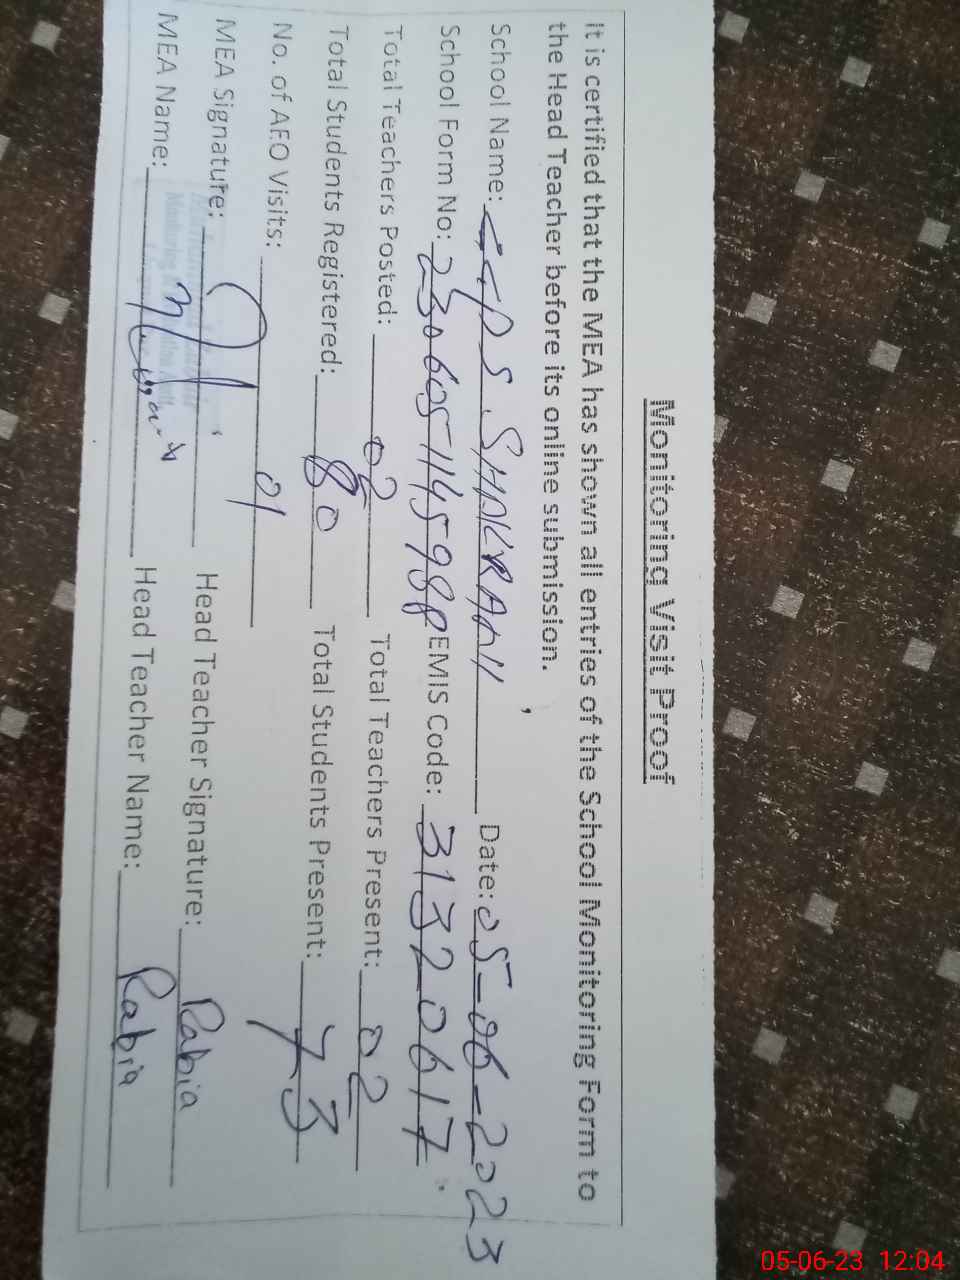 Monitoring Visit Proof
It is certified that the MEA has shown all entries of the School Monitoring Form to
the Head Teacher before its online submission.
School Name: GGPS SHAKRANI Date: 05-06-2023
School Form No: 230605145988 EMIS Code: 31320617
Total Teachers Posted: 02 Total Teachers Present: 02
Total Students Registered: 80 Total Students Present: 73
No. of AEO Visits: 01
MEA Signature: Head Teacher Signature: Rabia
MEA Name: Head Teacher Name: Rabia
05-06-23 12:04